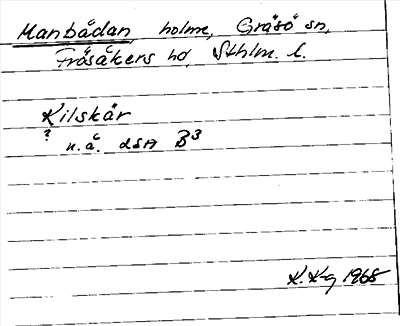 Manbådan, holme, Gräsö sn,
Frösåkers hd, Sthlm. l.
Kilskär
? n.å. LSA B3
K. K-g 1968